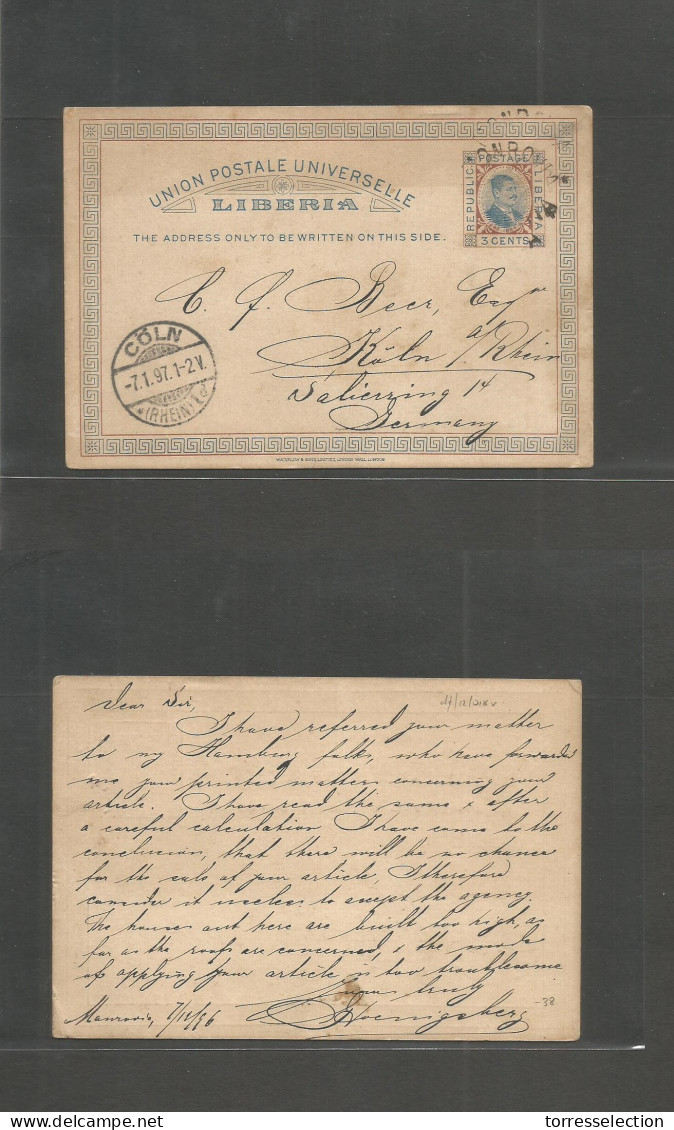 UNION POSTALE UNIVERSELLE
LIBERIA
THE ADDRESS ONLY TO BE WRITTEN ON THIS SIDE.
REPUBLIC
POSTAGE
LIBERIA
3 CENTS
C. f. Beer, Esqr
Köln a/Rhein
Salierring 14
Germany
CÖLN
-7.1.97.1-2V.
*(RHEIN)1d
WATERLOW & SONS, LIMITED, LONDON WALL, LONDON
Dear Sir,
I have referred your matter
to my Hamburg folks, who have forwarded
me your printed matters concerning your
article. I have read the same & after
a careful calculation I have come to the
conclusion, that there will be no chance
for the sale of your article, I therefore
consider it useless to accept the agency.
The houses out here are built too high, as
far as the roofs are concerned, & the mode
of applying your article is too troublesome
Yours truly
Hoenigsberg
Monrovia, 7/12/96
-38
delcampe.net
torresselection